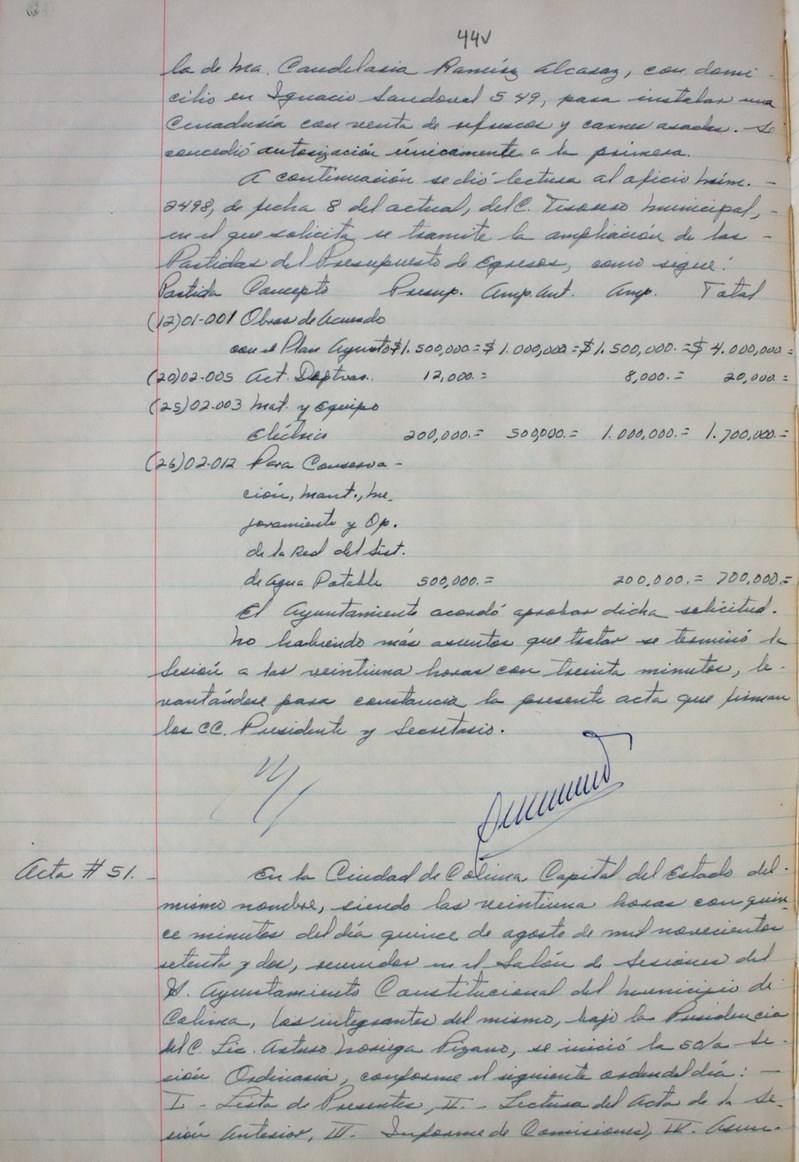 44v
la de Ma. Candelaria Ramírez Alcaraz, con domi-
cilio en Ignacio Sandoval 549, para instalar una
Cenaduría con venta de refrescos y carnes asadas. Se
concedió autorización únicamente a la primera.
A continuación se dió lectura al oficio Núm. -
2498, de fecha 8 del actual, del C. Tesorero Municipal, -
en el que solicita se tramite la ampliación de las -
Partidas del Presupuesto de Egresos, como sigue:
Partida Concepto Presup. Amp. Ant. Amp. Total
(12)01-001 Obras de Acuerdo
con el Plan Ayunto $1.500,000.= $1.000,000.= $1.500,000.= $4.000,000.=
(20)02-005 Act. Deptvas. 12,000.= 8,000.= 20,000.=
(25)02-003 Mat. y Equipo
Eléctrico 200,000.= 500,000.= 1.000,000.= 1.700,000.=
(26)02-012 Para Conserva-
ción, Mant., Me-
joramiento y Op.
de la Red del Sist.
de Agua Potable 500,000.= 200,000.= 700,000.=
El Ayuntamiento acordó aprobar dicha solicitud.
No habiendo más asuntos que tratar se terminó la
Sesión a las veintiuna horas con treinta minutos, le-
vantándose para constancia la presente acta que firman
los CC. Presidente y Secretario.
Acta # 51. - En la Ciudad de Colima Capital del Estado del
mismo nombre, siendo las veintiuna horas con quin-
ce minutos del día quince de agosto de mil novecientos
setenta y dos, reunidos en el Salón de Sesiones del
H. Ayuntamiento Constitucional del Municipio de
Colima, los integrantes del mismo, bajo la Presidencia
del C. Lic. Arturo Noriega Pizano, se inició la 50/a Se-
sión Ordinaria, conforme el siguiente orden del día: -
I - Lista de Presentes, II. - Lectura del Acta de la Se-
sión Anterior, III. Informe de Comisiones, IV. Asun-